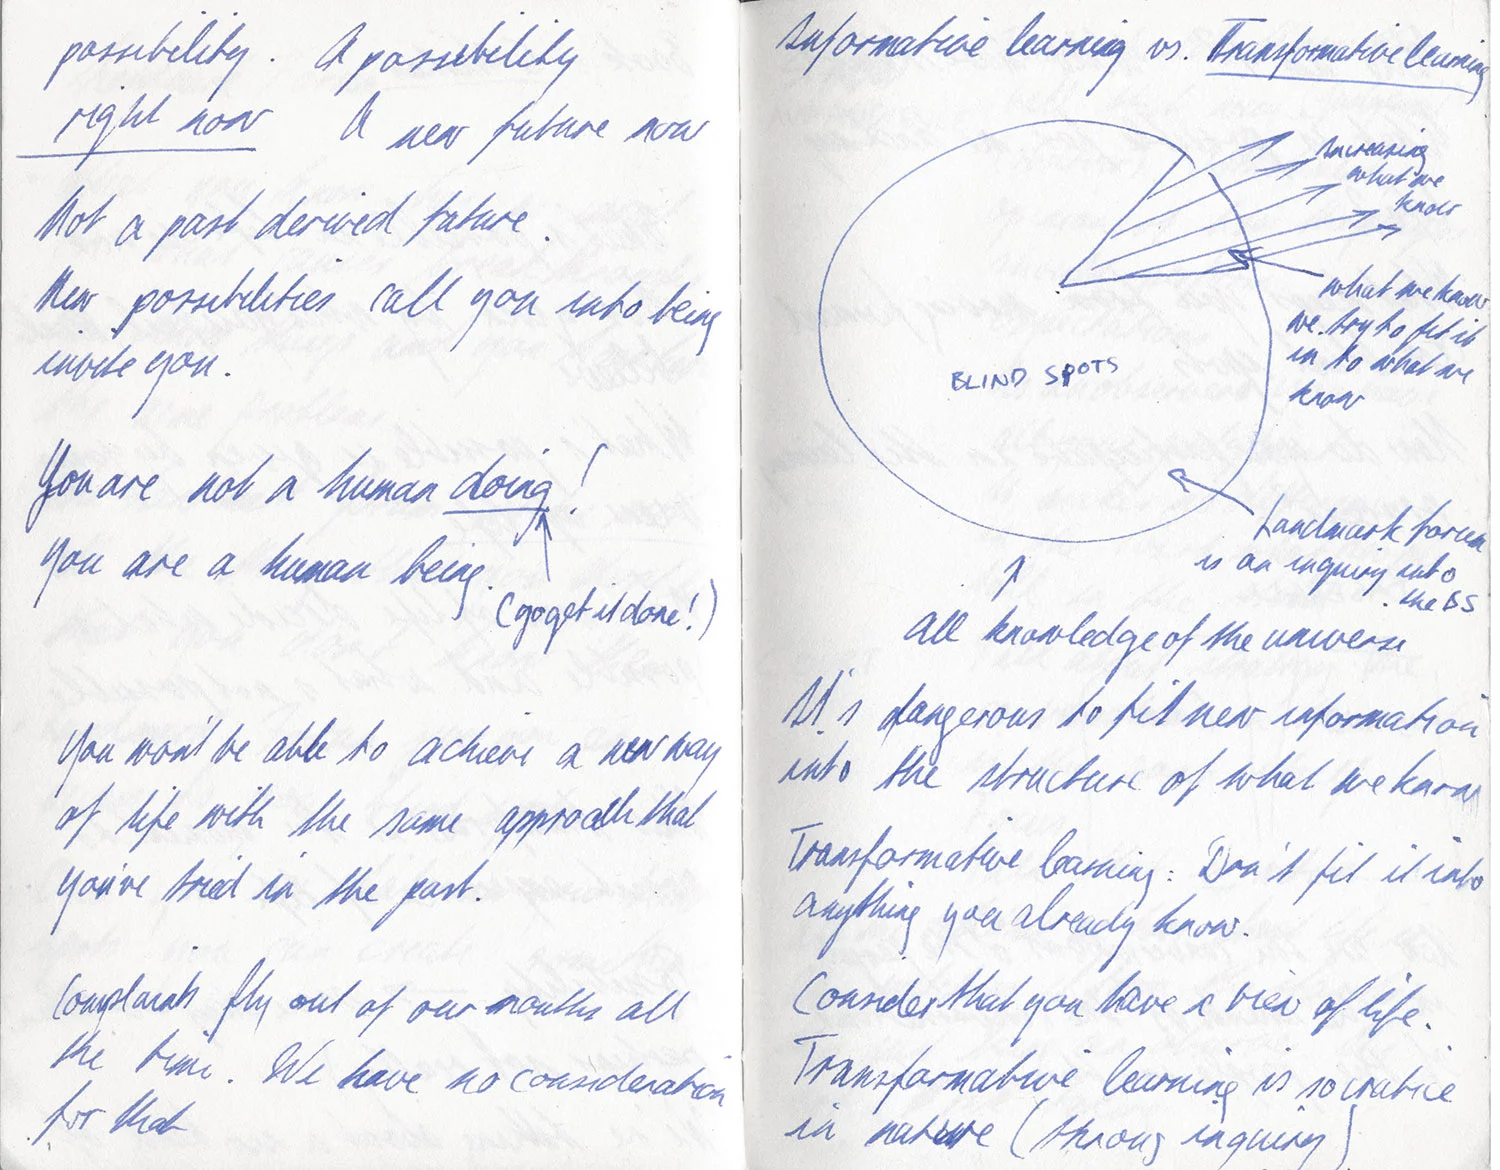 possibility. A possibility
right now A new future now
Not a past derived future.
New possibilities call you into being
invite you.
You are not a human doing!
You are a human being.
(go get it done!)
You won't be able to achieve a new way
of life with the same approach that
you've tried in the past.
Complaints fly out of our mouths all
the time. We have no consideration
for that
Informative learning vs. Transformative learning
increasing
what we
know
what we know
we try to fit it
in to what we
know
BLIND SPOTS
Landmark forum
is an inquiry into
the BS
All knowledge of the universe
It's dangerous to fit new information
into the structure of what we know
Transformative learning: Don't fit it into
anything you already know.
Consider that you have a view of life.
Transformative learning is socratice
in nature (strong inquiry)